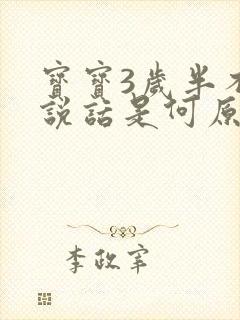 寶寶3歲半不
說話是何原
李政宰